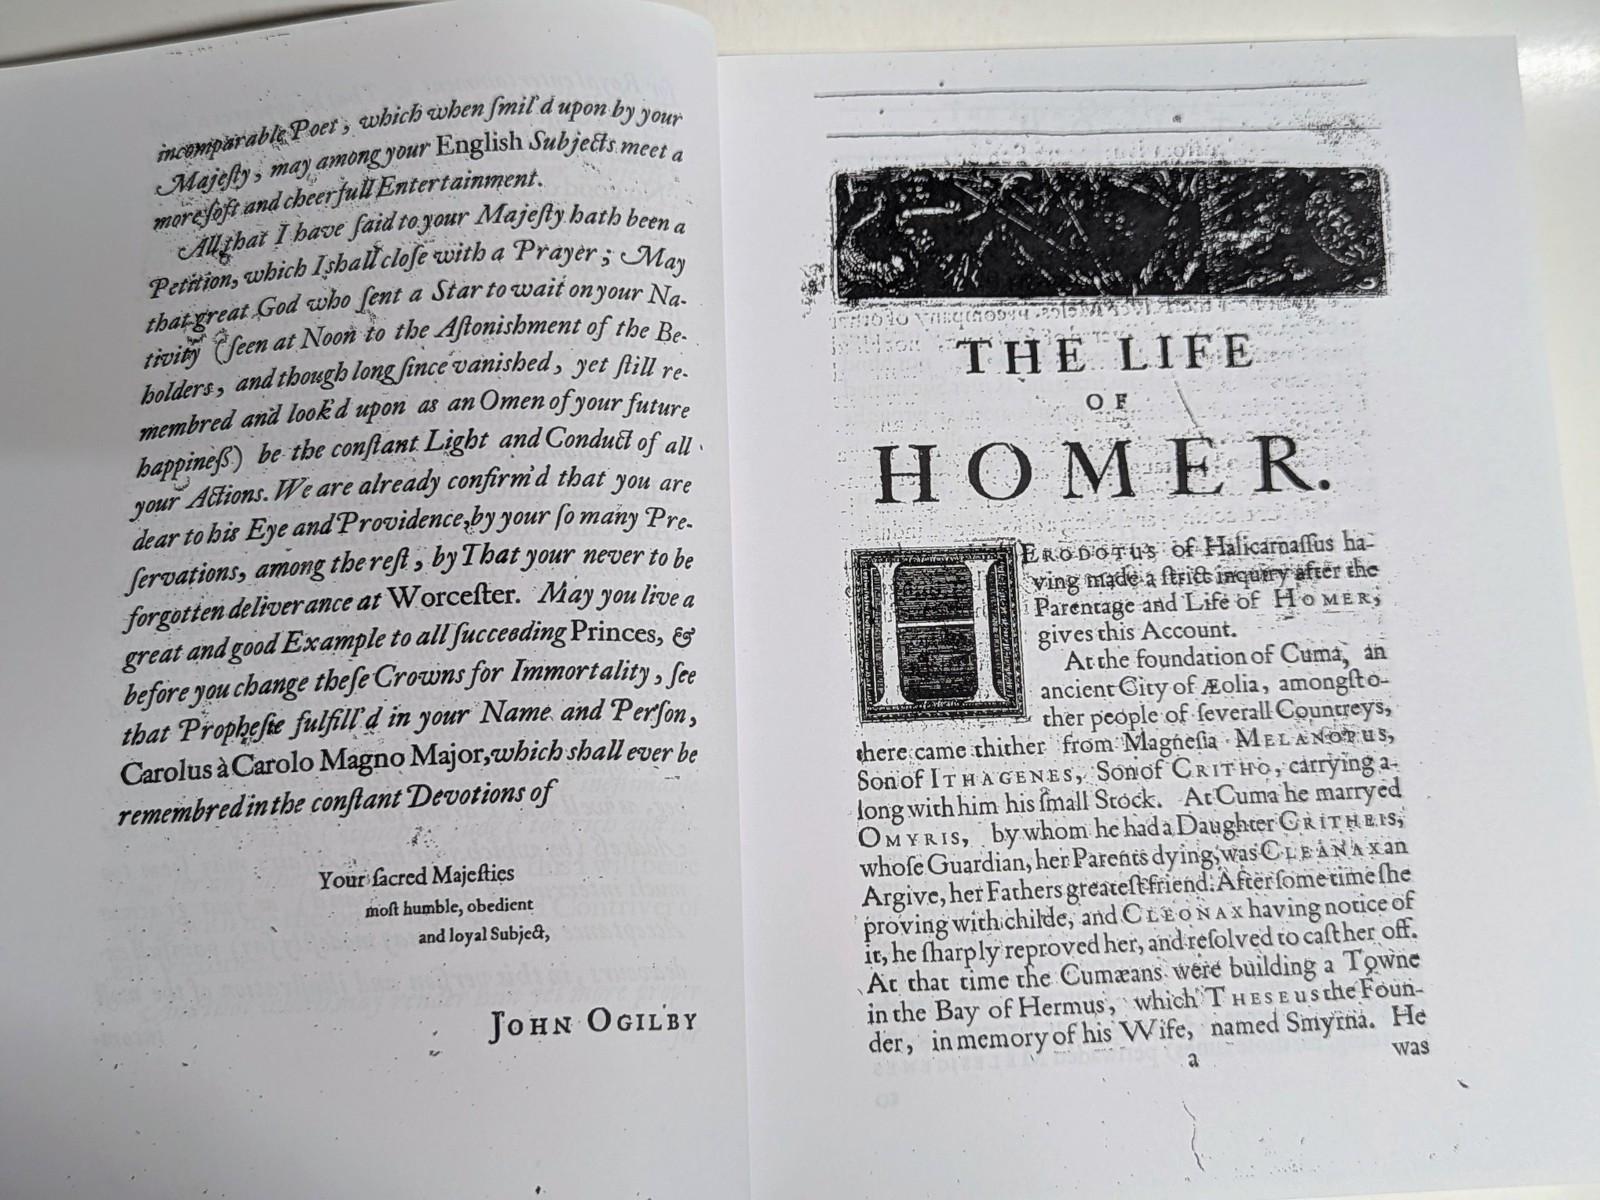 incomparable Poet, which when ſmil'd upon by your
Majeſty, may among your English Subjects meet a
more ſoft and cheerfull Entertainment.
All that I have ſaid to your Majeſty hath been a
Petition, which I shall cloſe with a Prayer; May
that great God who ſent a Star to wait on your Na-
tivity (ſeen at Noon to the Aſtonishment of the Be-
holders, and though long ſince vanished, yet ſtill re-
membred and look'd upon as an Omen of your future
happineſs) be the conſtant Light and Conduct of all
your Actions. We are already confirm'd that you are
dear to his Eye and Providence, by your ſo many Pre-
ſervations, among the reſt, by That your never to be
forgotten deliverance at Worceſter. May you live a
great and good Example to all ſucceeding Princes, &
before you change theſe Crowns for Immortality, ſee
that Propheſie fulfill'd in your Name and Perſon,
Carolus à Carolo Magno Major, which shall ever be
remembred in the conſtant Devotions of
Your ſacred Majeſties
moſt humble, obedient
and loyal Subject,
JOHN OGILBY
THE LIFE
OF
HOMER.
HERODOTUS of Halicarnaſſus ha-
ving made a ſtrict inquiry after the
Parentage and Life of HOMER,
gives this Account.
At the foundation of Cuma, an
ancient City of Æolia, amongſt o-
ther people of ſeverall Countreys,
there came thither from Magneſia MELANOPUS,
Son of ITHAGENES, Son of CRITHO, carrying a-
long with him his ſmall Stock. At Cuma he marryed
OMYRIS, by whom he had a Daughter CRITHEIS,
whoſe Guardian, her Parents dying, was CLEANAX an
Argive, her Fathers greateſt friend. After ſome time ſhe
proving with childe, and CLEONAX having notice of
it, he ſharply reproved her, and reſolved to caſt her off.
At that time the Cumæans were building a Towne
in the Bay of Hermus, which THESEUS the Foun-
der, in memory of his Wife, named Smyrna. He
a
was